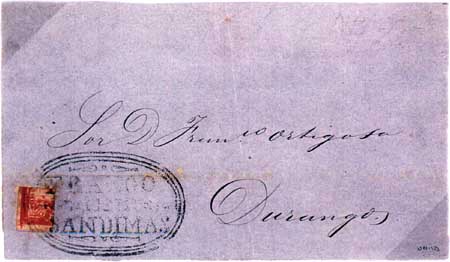 Sor D. Franco Ortigosa
Durango
FRANCO
SANDIMAS